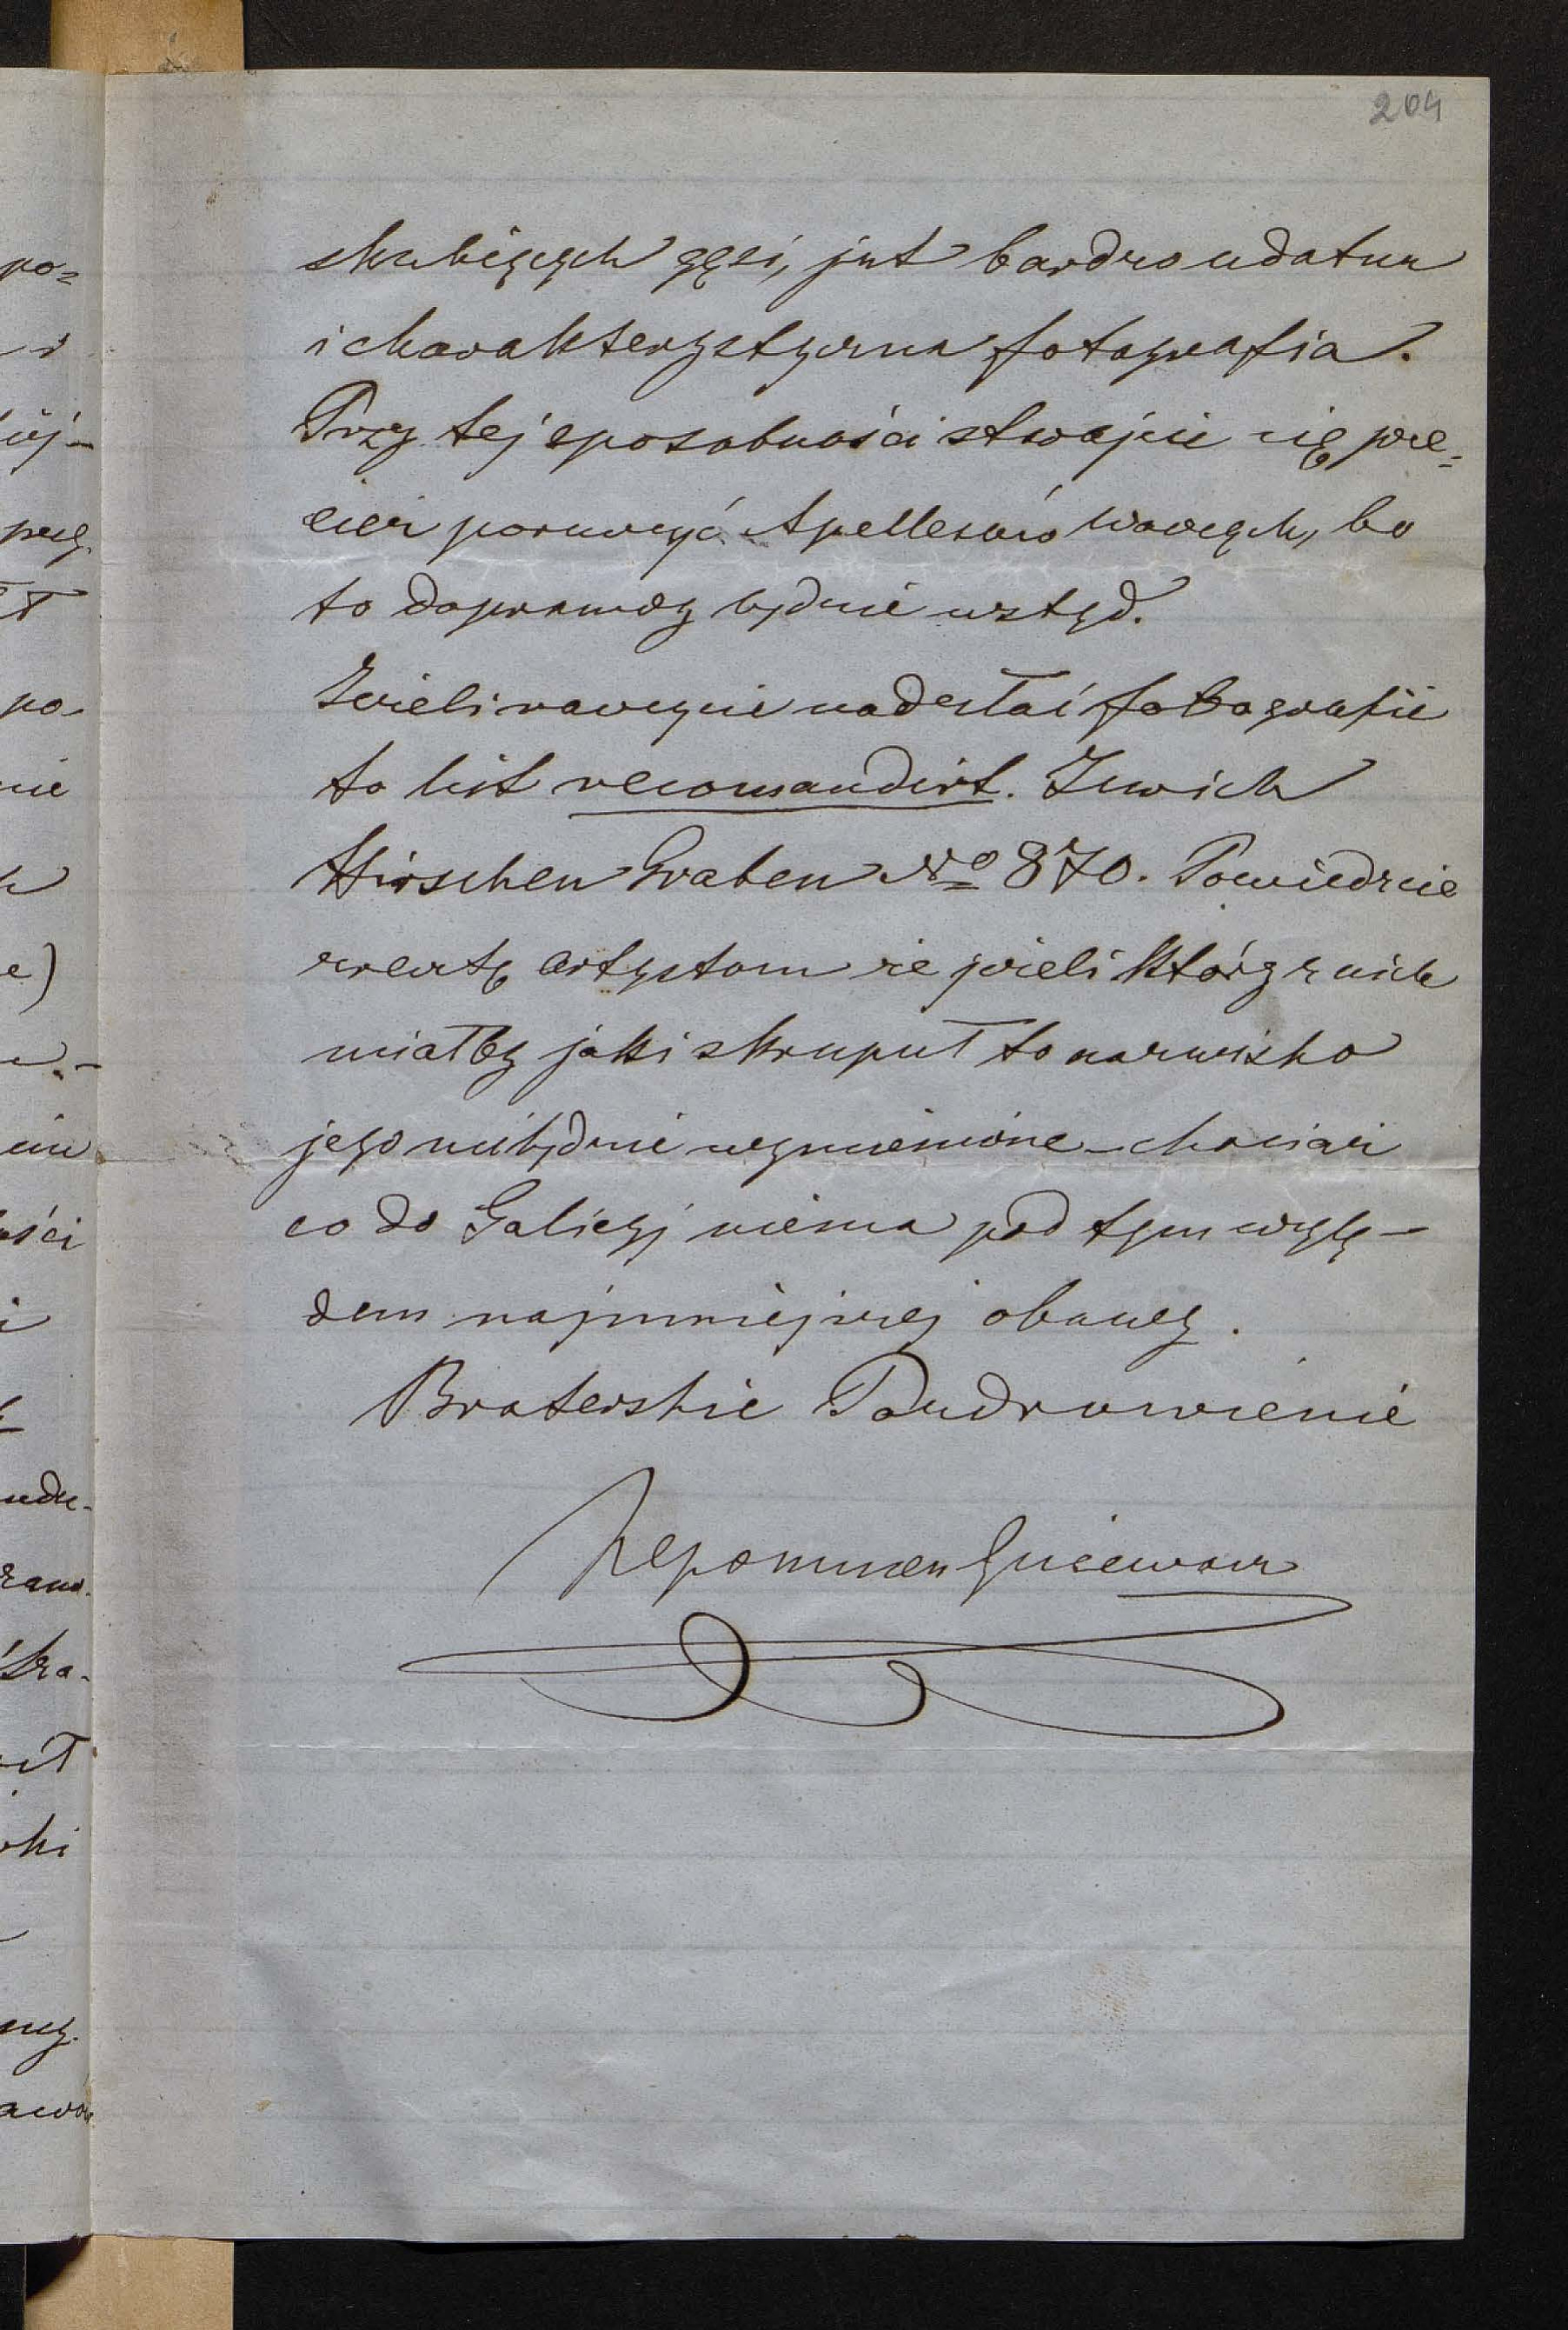 204
skubiących gęsi, jest bardzo udatna
i charakterystyczna fotografia.
Przy tej sposobności starajcie się prze=
cież poruszyć Apellesów Waszych, bo
to doprawdy będzie wstyd.
Jeżeli raczycie nadesłać fotografie
to list recomandirt. Zurich
Hirschen Graben No 870. Powiedzcie
zresztą artystom że jeżeli który z nich
miałby jaki skrupuł to nazwisko
jego niebędzie wymienione – chociaż
co do Galicyj niema pod tym wzglę–
dem najmniejszej obawy.
Braterskie Pozdrowienie
Nepomucen
po=
po
nie
e)
ści